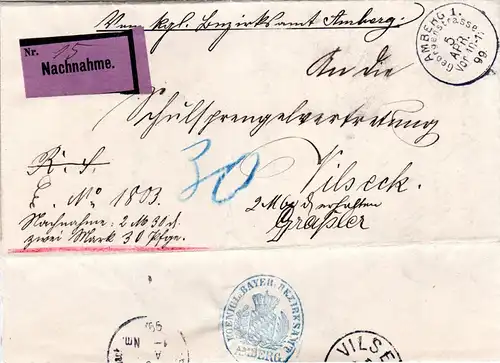 Vom kgl. Bezirksamt Amberg:
AMBERG 1.
Georgenstrasse
5
APR.
Vor. 10-11
99
Nr. 15
Nachnahme.
An die
Schulsprengelvertretung
R. S.
30
Vilseck.
E. No 1803.
2 M 30 ₰ erhalten
Nachnahme: 2 M 30 ₰.
Graßler
zwei Mark 30 Pfge.
KOENIGL. BAYER. BEZIRKSAMT
AMBERG
VILSE
Nm.
99